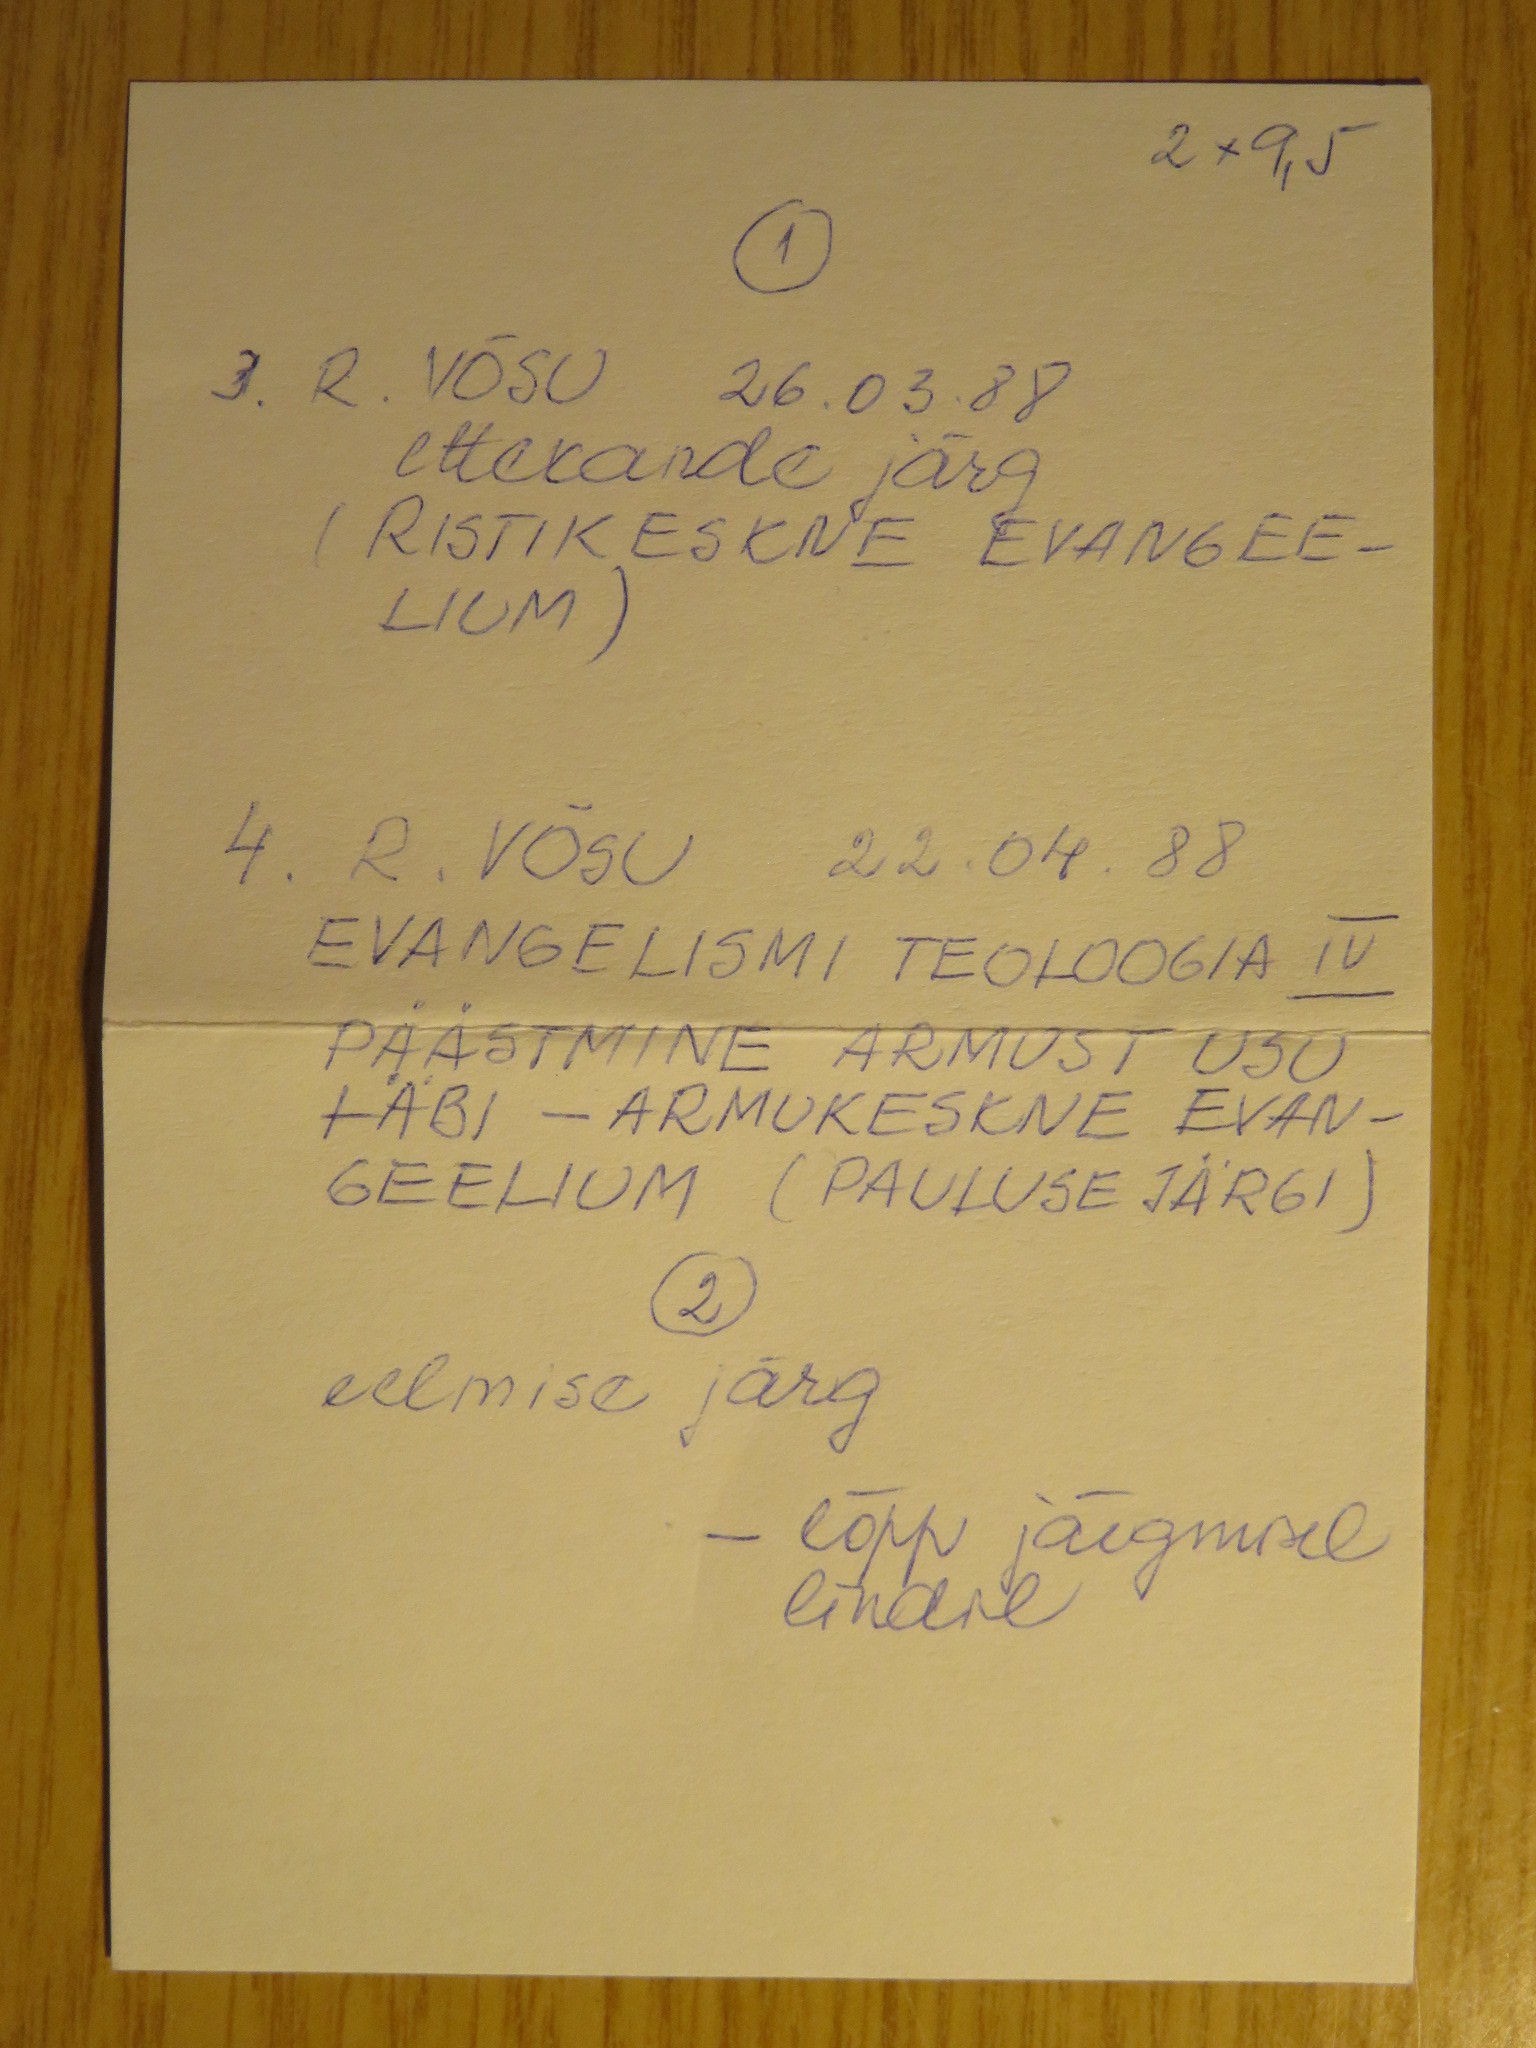 2 × 9,5
1
3. R. VÕSU 26.03.88
ettekande järg
(RISTIKESKNE EVANGEE-
LIUM)
4. R. VÕSU 22.04.88
EVANGELISMI TEOLOOGIA IV
PÄÄSTMINE ARMUST USU
LÄBI – ARMUKESKNE EVAN-
GEELIUM (PAULUSE JÄRGI)
2
eelmise järg
– lõpp järgmisel
lindil